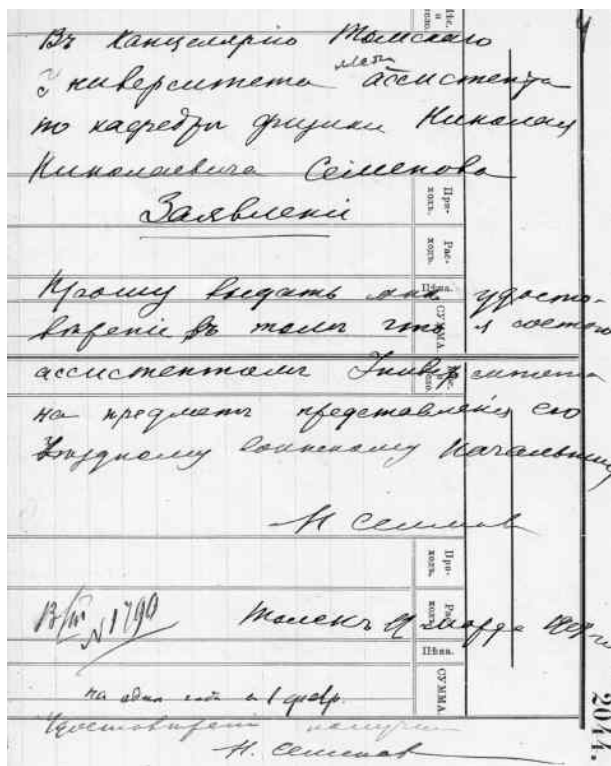 Въ Канцелярію Томскаго
Университета ассистента
по кафедры физики Николая
Николаевича Семенова
Заявленіе
Прошу выдать мнѣ удосто-
вѣреніе въ томъ что я состою
ассистентомъ Университета
на предметъ представленія его
Уѣздному Воинскому Начальнику
Н Семенов
13/III N 1790
Томскъ марта
на одинъ годъ с 1 февр.
Удостовѣреніе получилъ
Н. Семенов
2044.
При-
ходъ.
Рас-
ходъ.
Цѣна.
СУММА.
При-
ходъ.
Рас-
ходъ.
Цѣна.
СУММА.